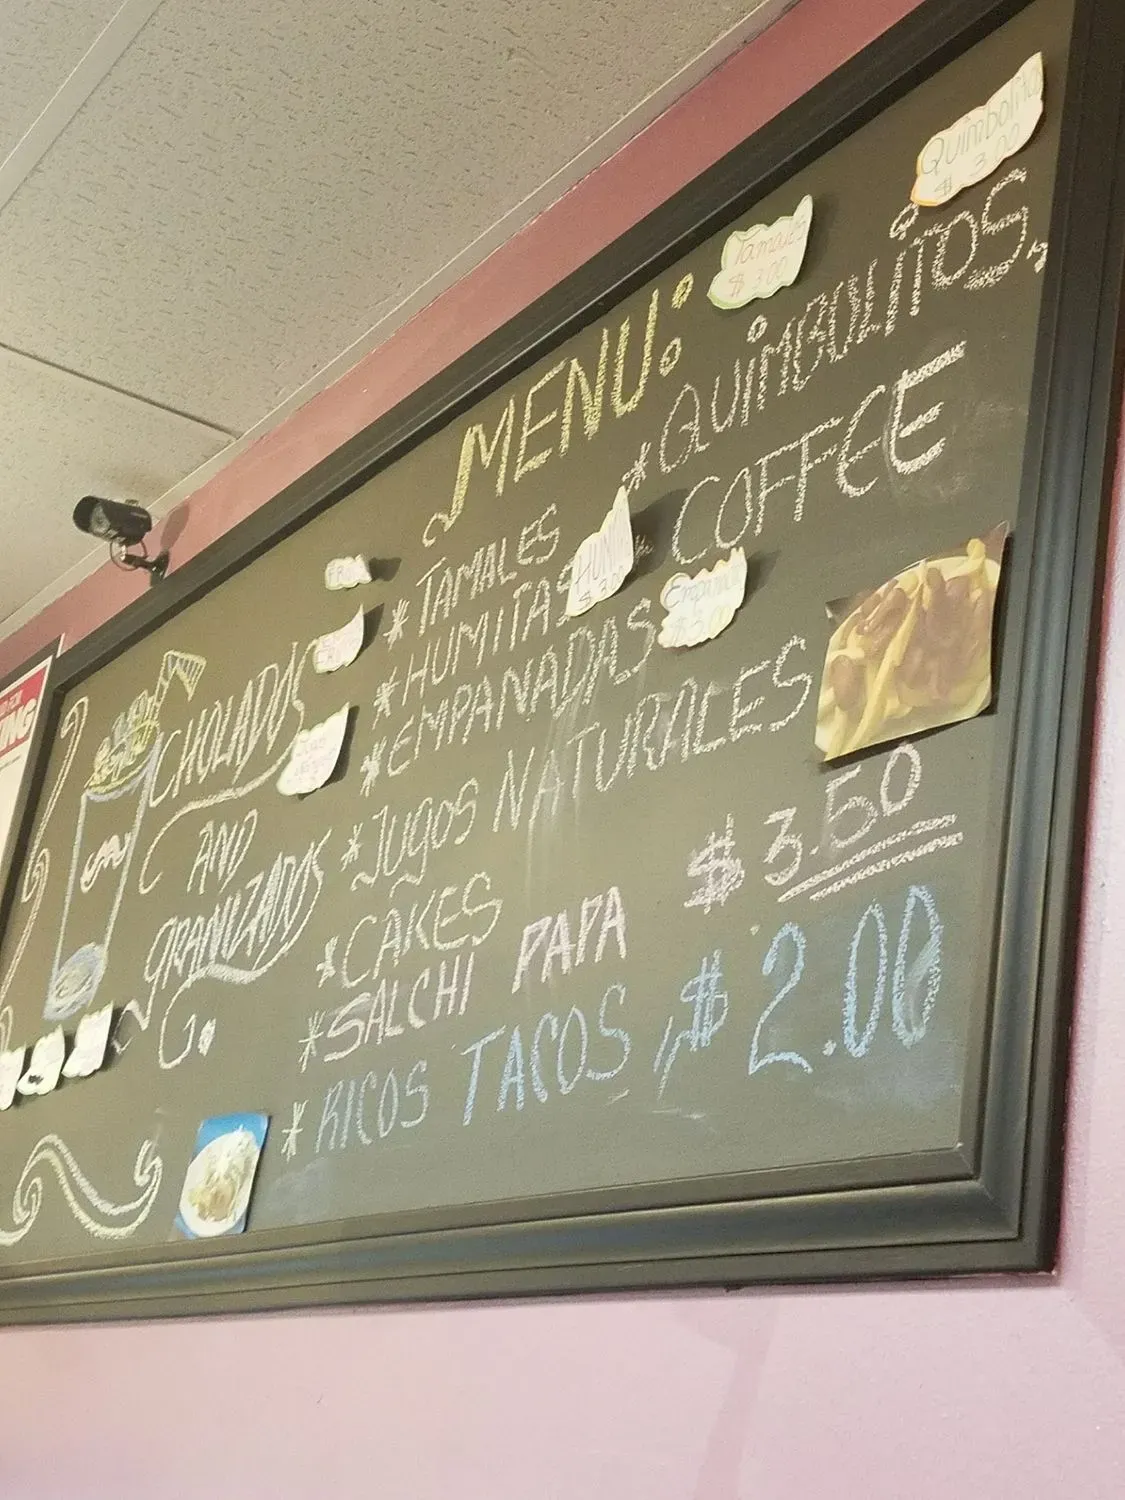 Quimbolitos
$ 3.00
Tamales
$ 3.00
MENU:
* TAMALES
* QUIMBOLITOS,
* HUMITAS
$ 3.00
COFFEE
* EMPANADAS
Empanadas
* JUGOS NATURALES
* CAKES
* SALCHI PAPA $ 3.50
* RICOS TACOS $ 2.00
CHOLADOS
AND
GRANIZADOS